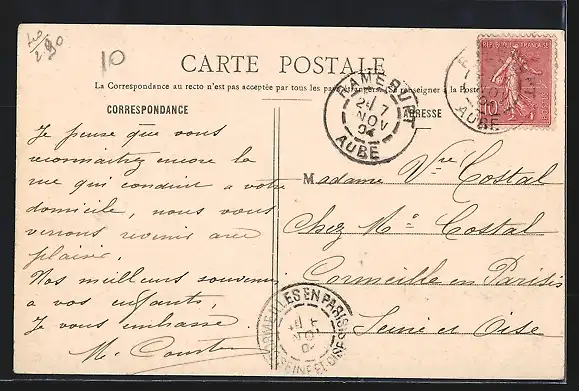 10
CARTE POSTALE
La Correspondance au recto n'est pas acceptée par tous les pays étrangers. (Se renseigner à la Poste
CORRESPONDANCE
ADRESSE
RÉPUBLIQUE FRANÇAISE
10
RAMERUPT
24 7
NOV
04
AUBE
AUBE
Je pense que vous
reconnaitrez encore la
rue qui conduit a votre
domicile, nous vous
verrons revenir avec
plaisir.
Nos meilleurs souvenirs
a vos enfants.
Je vous embrasse.
Madame Vve Costal
Chez Mr Costal
Cormeille en Parisis
Seine et Oise
CORMEILLES EN PARISIS
NOV
04
SEINE ET OISE